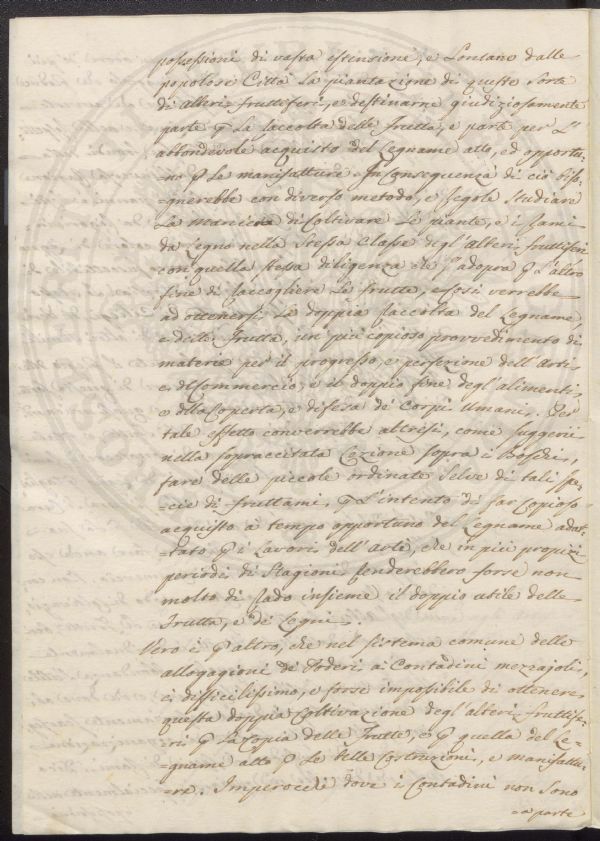 possessioni di vasta estensione, e Lontano dalle
popolose Città La piantazione di queste Sorte
di Alberi fruttiferi, e destinarne giudiziosamente
parte p La raccolta delle frutta, e parte per L'
abbondevole acquisto del Legname atto, ed opportu-
-no p Le manifatture. In conseguenza di ciò biso-
-gnerebbe con diverso metodo, e regole studiare
La maniera di Coltivare Le piante, e i rami
da legno nella stessa Classe degl'alberi fruttiferi
con quella stessa diligenza che s'adopra p L'altro
fine di raccogliere Le frutta, e così verrebbe
ad ottenersi La doppia raccolta del Legname,
e delle frutta, un più copioso provvedimento di
materie per il progresso, e perfezione dell'Arti
e di Commercio, e il doppio fine degl'alimenti,
e della Coperta, e difesa de' Corpi Umani. Per
tale effetto converrebbe altresì, come suggerii
nella sopraccitata Lezione sopra i Boschi,
fare delle piccole ordinate Selve di tali spe-
-cie di fruttami, p L'intento di far Copioso
acquisto a tempo opportuno del Legname adat-
-tato p i Lavori dell'arte, che in più propizi
periodi di Stagioni renderebbero forse non
molto di rado insieme il doppio utile delle
frutta, e de' Legni.
Vero è p altro, che nel sistema comune delle
allogagioni de' Poderi ai Contadini mezzajoli,
è difficilissimo, e forse impossibile di ottenere
questa doppia Coltivazione degl'alberi fruttife-
ri p La copia delle frutte, e p quella del Le-
-gname atto p Le belle Costruzioni, e manifattu-
-re. Imperocchè dove i Contadini non Sono
-a parte